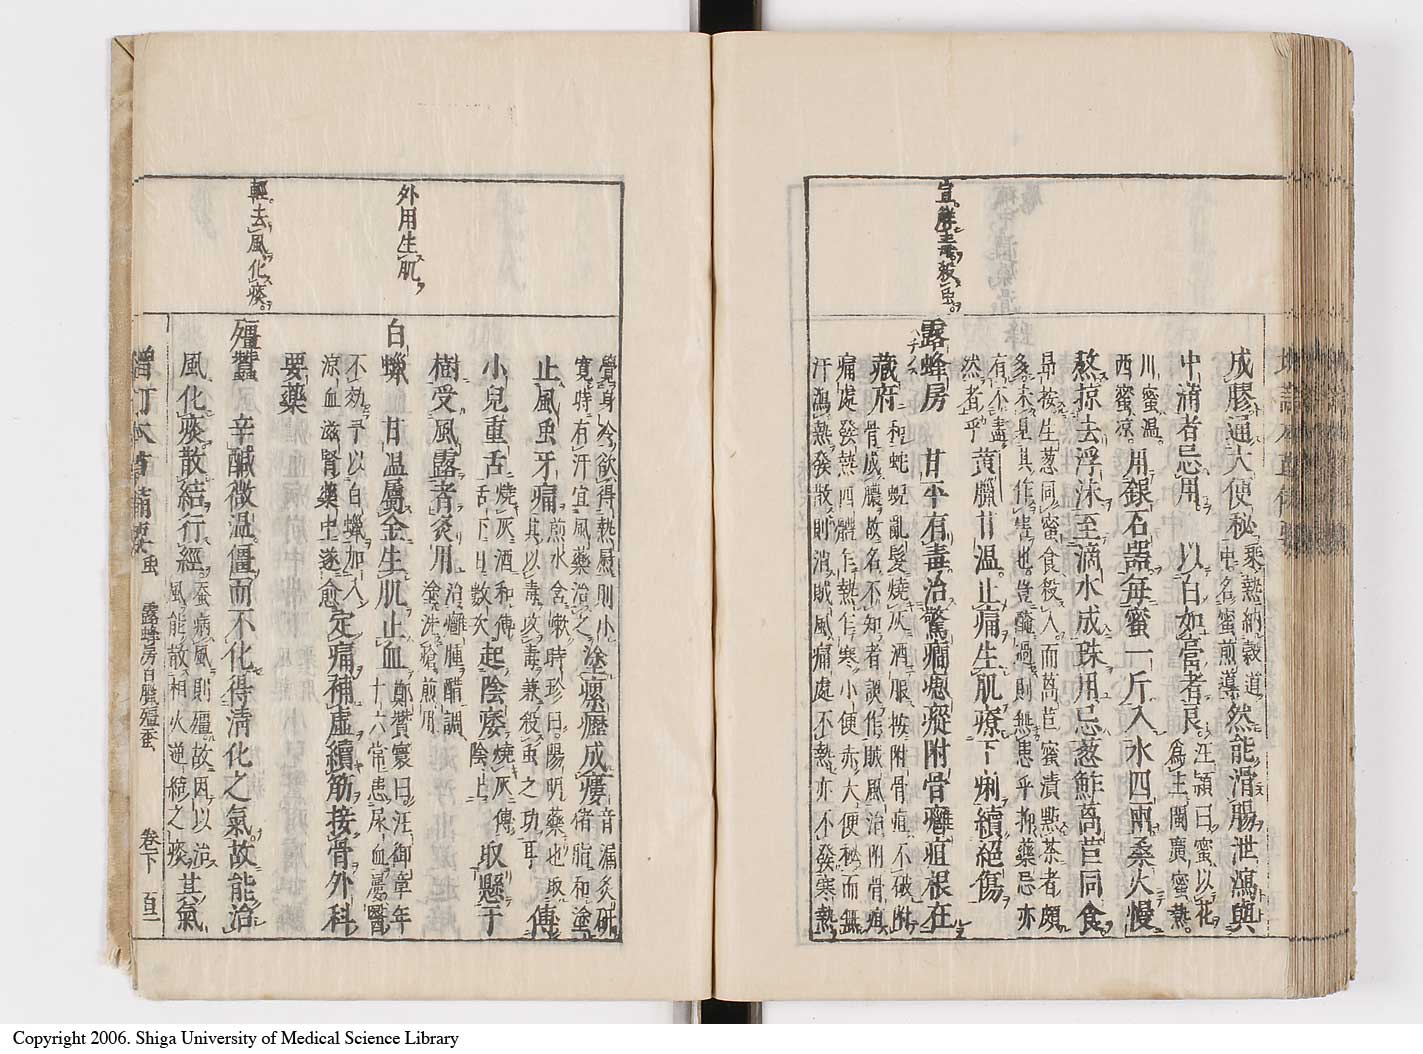 宜解毒殺虫
成膠通大便秘乘熱納穀道中名蜜煎導然能滑腸泄瀉與
中滿者忌用以白如膏者良汪頴曰蜜以花為主閩廣蜜熱
川蜜温西蜜凉用銀石器每蜜一斤入水四兩桑火慢
熬掠去浮沫至滴水成珠用忌葱鮓萵苣同食
昂按生葱同蜜食殺人而萵苣蜜漬點茶者頗
多未見其作害也豈醶過則無患乎抑藥忌亦
有不盡然者乎黄臘甘温止痛生肌療下痢續絕傷
露蜂房甘平有毒治驚癇瘛瘲附骨癰疽根在
藏府和蛇蛻亂髮燒灰酒服按附骨疽不破附骨成膿故名不知者誤作賊風治附骨疽
痛處發熱四體乍熱乍寒小便赤大便秘而無
汗瀉熱發散則消賊風痛處不熱亦不發寒熱
外用生肌
輕去風化痰
覺身冷欲得熱熨則小
寛時有汗宜風藥治之塗瘰癧成瘻音漏炙研猪脂和塗
止風虫牙痛煎水含嗽時珍曰陽明藥也取其以毒攻毒兼殺虫之功耳傅
小兒重舌燒灰酒和傅舌下日數次起陰痿燒灰傅陰上取懸于
樹受風露者炙用治癰腫醋調塗洗瘡煎用
白蠟甘温屬金生肌止血鄭贊寰曰汪御章年十六常患尿血屢醫
不効予以白蠟加入凉血滋腎藥中遂愈定痛補虚續筋接骨外科
要藥
殭蠶辛鹹微温僵而不化得清化之氣故能治
風化痰散結行經蚕病風則殭故因以治風能散相火逆結之痰其氣
増訂本草備要虫 露蜂房白臘殭蚕 卷下
Copyright 2006. Shiga University of Medical Science Library